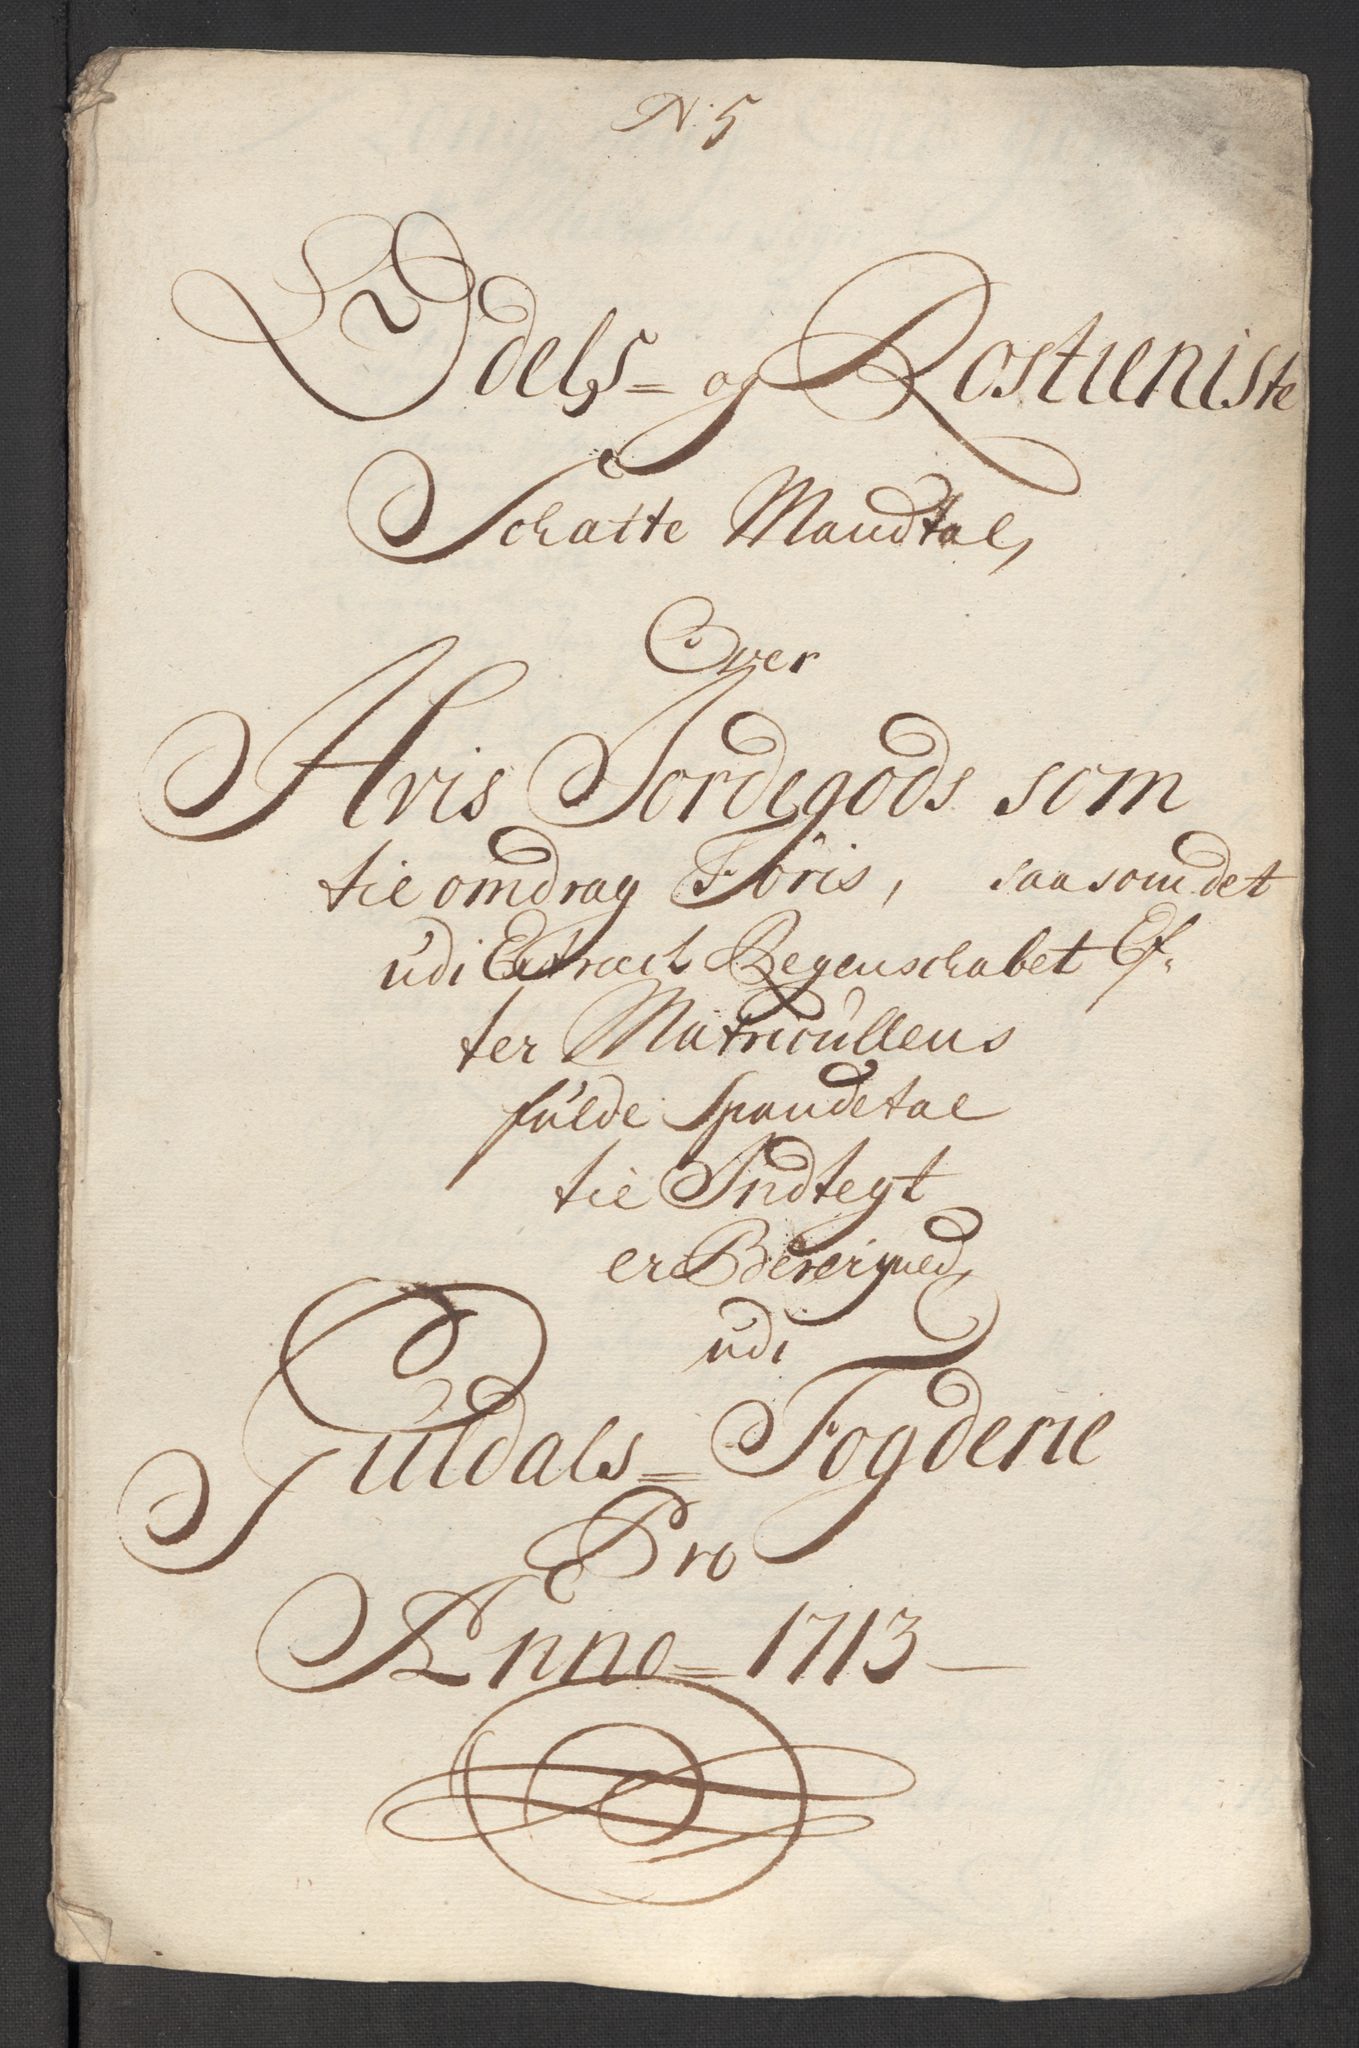 N: 5
Odels- og Rostieniste
Schatte Mandtal,
Over
Hvis Jordegods som
til omdrag Føris, saasom det
udi Extract Regenschabet Ef-
ter Matricullens
fulde Spandetal
til Indtegt
er Bereigned,
udi
Guldals- Fogderie
Pro
Anno- 1713